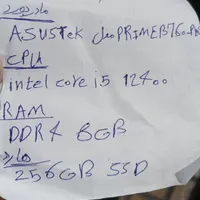 مادربورد
ASUSTek مدل PRIMEB760-
CPU
intel core i5 12400
RAM
DDR4 8GB
هارد
256GB SSD